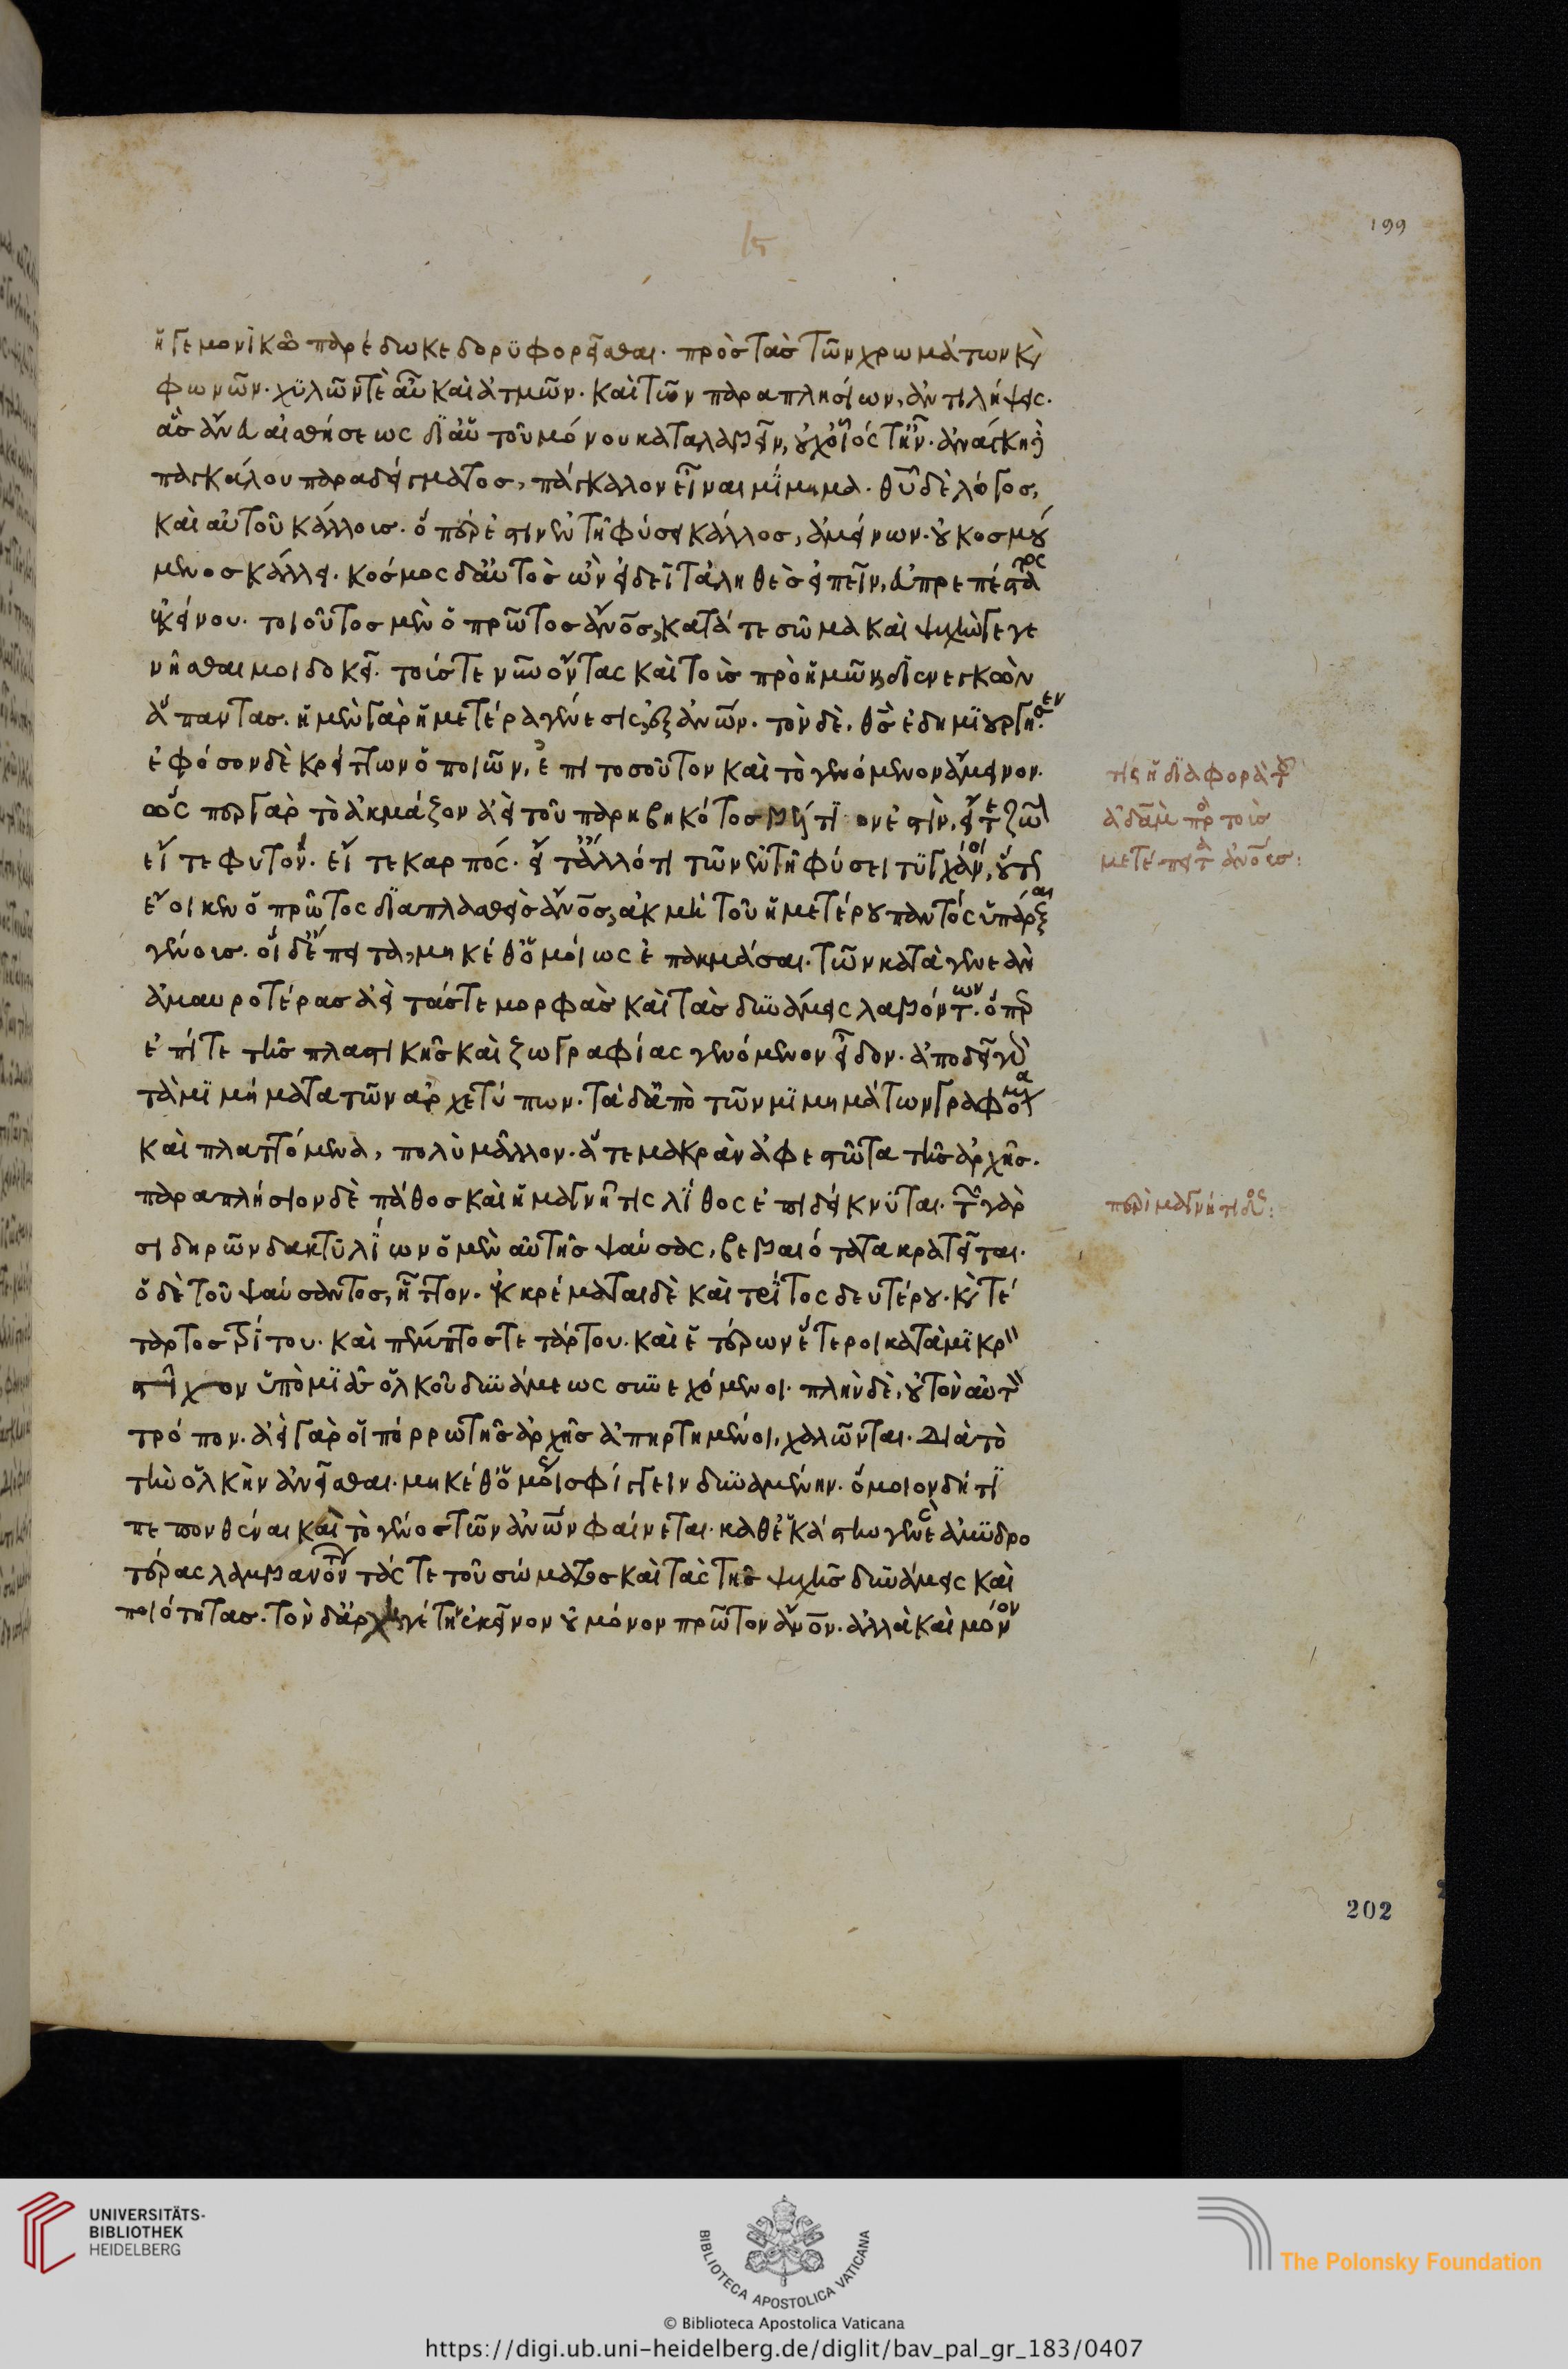 ἡγεμονικῶ παρέδωκε δορυφορεῖσθαι. πρὸς τὰς τῶν χρωμάτων κ(αὶ)
φωνῶν. χυλῶν τὲ αὖ καὶ ἀτμῶν. καὶ τῶν παραπλησίων, ἀντιλήψεις.
ἃς ἄνευ αἰσθήσεως δι αὑτοῦ μόνου καταλαβεῖν, οὐχ οἷός τ' ἦν. ἀνάγκη δὲ
παγκάλου παραδείγματος, πάγκαλον εἶναι μίμημα. θῦ δὲ λόγος,
καὶ αὐτοῦ κάλλους. ὅπερ ἐστὶν ἐν τῆ φύσει κάλλος, ἀμείνων. οὐ κοσμού
μενος κάλλει. κόσμος δ' αὐτὸς ὢν εἰ δεῖ τἀληθὲς εἰπεῖν, εὐπρεπέστατος
ἐκείνου. τοιοῦτος μὲν ὁ πρῶτος ἄνος, κατά τε σῶμα καὶ ψυχὴν γεγε
νῆσθαι μοι δοκεῖ. τούς τε νῦν ὄντας καὶ τοὺς πρὸ ἡμῶν διενεγκὼν
ἅπαντας. ἡ μὲν γὰρ ἡμετέρα γένεσις, ἐξ ἀνων. τὸν δὲ, θς ἐδημιούργησεν.
ἐφόσον δὲ κρείττων ὁ ποιῶν, ἐπι τοσοῦτον καὶ τὸ γενόμενον ἄμεινον.
ὥσπερ γὰρ τὸ ἀκμάζον ἀεὶ τοῦ παρηβηκότος βέλτιον ἐστὶν, εἴτε ζῶον
εἴτε φυτόν. εἴτε καρπός. εἴτ' ἄλλό τι τῶν ἐν τῆ φύσει τυγχάνοι, οὕτως
ἔοικεν ὁ πρῶτος διαπλασθεὶς ἄνος, ἀκμὴ τοῦ ἡμετέρου παντός ὑπάρξαι
γένους. οἱ δ' ἔπειτα, μηκέθ' ὁμοίως ἐπακμάσαι. τῶν κατὰ γενεὰν
ἀμαυροτέρας ἀεὶ τάς τε μορφὰς καὶ τὰς δυνάμεις λαβόντων. ὅπερ
ἐπί τε τῆς πλαστικῆς καὶ ζωγραφίας γενόμενον εἶδον. ἀποδεῖ γὰρ
τὰ μιμήματα τῶν ἀρχετύπων. τὰ δ' ἀπὸ τῶν μιμημάτων γραφόμενα
καὶ πλαττόμενα, πολὺ μᾶλλον. ἅτε μακρὰν ἀφεστῶτα τῆς ἀρχῆς.
παραπλήσιον δὲ πάθος καὶ ἡ μαγνῆτις λίθος ἐπιδείκνυται. τῶν γὰρ
σιδηρῶν δακτυλίων ὁ μὲν αὐτῆς ψαύσας, βεβαιότατα κρατεῖται.
ὁ δὲ τοῦ ψαύσαντος, ἧττον. ἐκκρέμαται δὲ καὶ τρίτος δευτέρου. κ(αὶ) τέ
ταρτος τρίτου. καὶ πέμπτος τετάρτου. καὶ ἑτέρων ἕτεροι κατὰ μακρὸν
στίχον ὑπὸ μιᾶς ὁλκοῦ δυνάμεως συνεχόμενοι. πλὴν δὲ, οὐ τὸν αὐτὸν
τρόπον. ἀεὶ γὰρ οἱ πόρρω τῆς ἀρχῆς ἀπηρτημένοι, χαλῶνται. διὰ τὸ
τὴν ὁλκὴν ἀνεῖσθαι. μηκέθ' ὁμοίως σφίγγειν δυναμένην. ὅμοιον δή τι
πεπονθέναι καὶ τὸ γένος τῶν ἀνων φαίνεται. καθ' ἑκάστην γενεὰν ἀμυδρο
τέρας λαμβανόντων τάς τε τοῦ σώματος καὶ τὰς τῆς ψυχῆς δυνάμεις καὶ
ποιότητας. τὸν δ' ἀρχηγέτην ἐκεῖνον οὐ μόνον πρῶτον ἄνον. ἀλλὰ καὶ μόνον
τίς ἡ διαφορὰ τοῦ
ἀδὰμ πρὸς τοὺς
μετέπειτα ἀνους:
περὶ μαγνήτιδος:
199
202
UNIVERSITÄTS-
BIBLIOTHEK
HEIDELBERG
BIBLIOTECA APOSTOLICA VATICANA
The Polonsky Foundation
© Biblioteca Apostolica Vaticana
https://digi.ub.uni-heidelberg.de/diglit/bav_pal_gr_183/0407